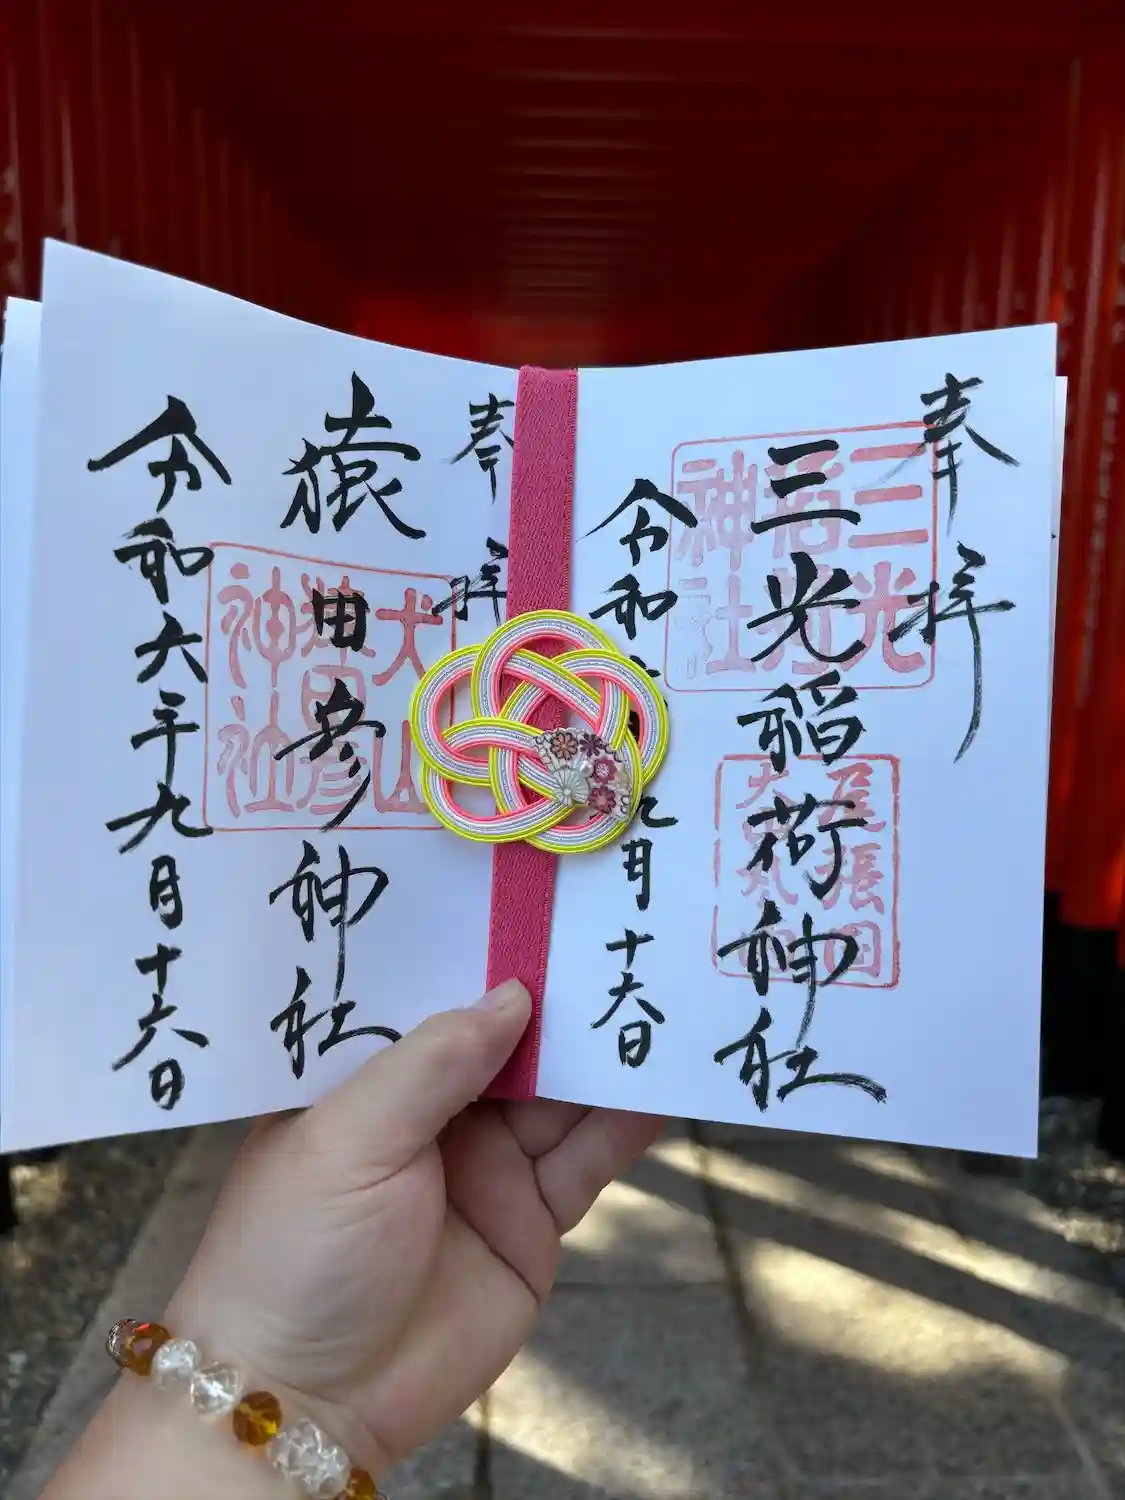 奉拝
三光稲荷神社
令和 九月十六日
三光稲荷神社
尾張国犬山
奉拝
猿田彦神社
令和六年九月十六日
犬山猿田彦神社